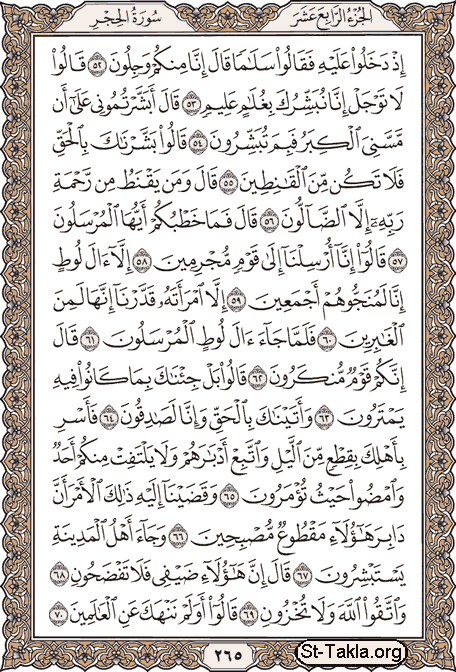 سُورَةُ الحِجْرِ الجُزْءُ الرَّابِعَ عَشَرَ
إِذْ دَخَلُوا۟ عَلَيْهِ فَقَالُوا۟ سَلَٰمًا قَالَ إِنَّا مِنكُمْ وَجِلُونَ ٥٢ قَالُوا۟
لَا تَوْجَلْ إِنَّا نُبَشِّرُكَ بِغُلَٰمٍ عَلِيمٍ ٥٣ قَالَ أَبَشَّرْتُمُونِى عَلَىٰٓ أَن
مَّسَّنِىَ ٱلْكِبَرُ فَبِمَ تُبَشِّرُونَ ٥٤ قَالُوا۟ بَشَّرْنَٰكَ بِٱلْحَقِّ
فَلَا تَكُن مِّنَ ٱلْقَٰنِطِينَ ٥٥ قَالَ وَمَن يَقْنَطُ مِن رَّحْمَةِ
رَبِّهِۦٓ إِلَّا ٱلضَّآلُّونَ ٥٦ قَالَ فَمَا خَطْبُكُمْ أَيُّهَا ٱلْمُرْسَلُونَ
٥٧ قَالُوٓا۟ إِنَّآ أُرْسِلْنَآ إِلَىٰ قَوْمٍ مُّجْرِمِينَ ٥٨ إِلَّآ ءَالَ لُوطٍ
إِنَّا لَمُنَجُّوهُمْ أَجْمَعِينَ ٥٩ إِلَّا ٱمْرَأَتَهُۥ قَدَّرْنَآ إِنَّهَا لَمِنَ
ٱلْغَٰبِرِينَ ٦٠ فَلَمَّا جَآءَ ءَالَ لُوطٍ ٱلْمُرْسَلُونَ ٦١ قَالَ
إِنَّكُمْ قَوْمٌ مُّنكَرُونَ ٦٢ قَالُوا۟ بَلْ جِئْنَٰكَ بِمَا كَانُوا۟ فِيهِ
يَمْتَرُونَ ٦٣ وَأَتَيْنَٰكَ بِٱلْحَقِّ وَإِنَّا لَصَٰدِقُونَ ٦٤ فَأَسْرِ
بِأَهْلِكَ بِقِطْعٍ مِّنَ ٱلَّيْلِ وَٱتَّبِعْ أَدْبَٰرَهُمْ وَلَا يَلْتَفِتْ مِنكُمْ أَحَدٌ
وَٱمْضُوا۟ حَيْثُ تُؤْمَرُونَ ٦٥ وَقَضَيْنَآ إِلَيْهِ ذَٰلِكَ ٱلْأَمْرَ أَنَّ
دَابِرَ هَٰٓؤُلَآءِ مَقْطُوعٌ مُّصْبِحِينَ ٦٦ وَجَآءَ أَهْلُ ٱلْمَدِينَةِ
يَسْتَبْشِرُونَ ٦٧ قَالَ إِنَّ هَٰٓؤُلَآءِ ضَيْفِى فَلَا تَفْضَحُونِ ٦٨
وَٱتَّقُوا۟ ٱللَّهَ وَلَا تُخْزُونِ ٦٩ قَالُوٓا۟ أَوَلَمْ نَنْهَكَ عَنِ ٱلْعَٰلَمِينَ ٧٠
٢٦٥
St-Takla.org